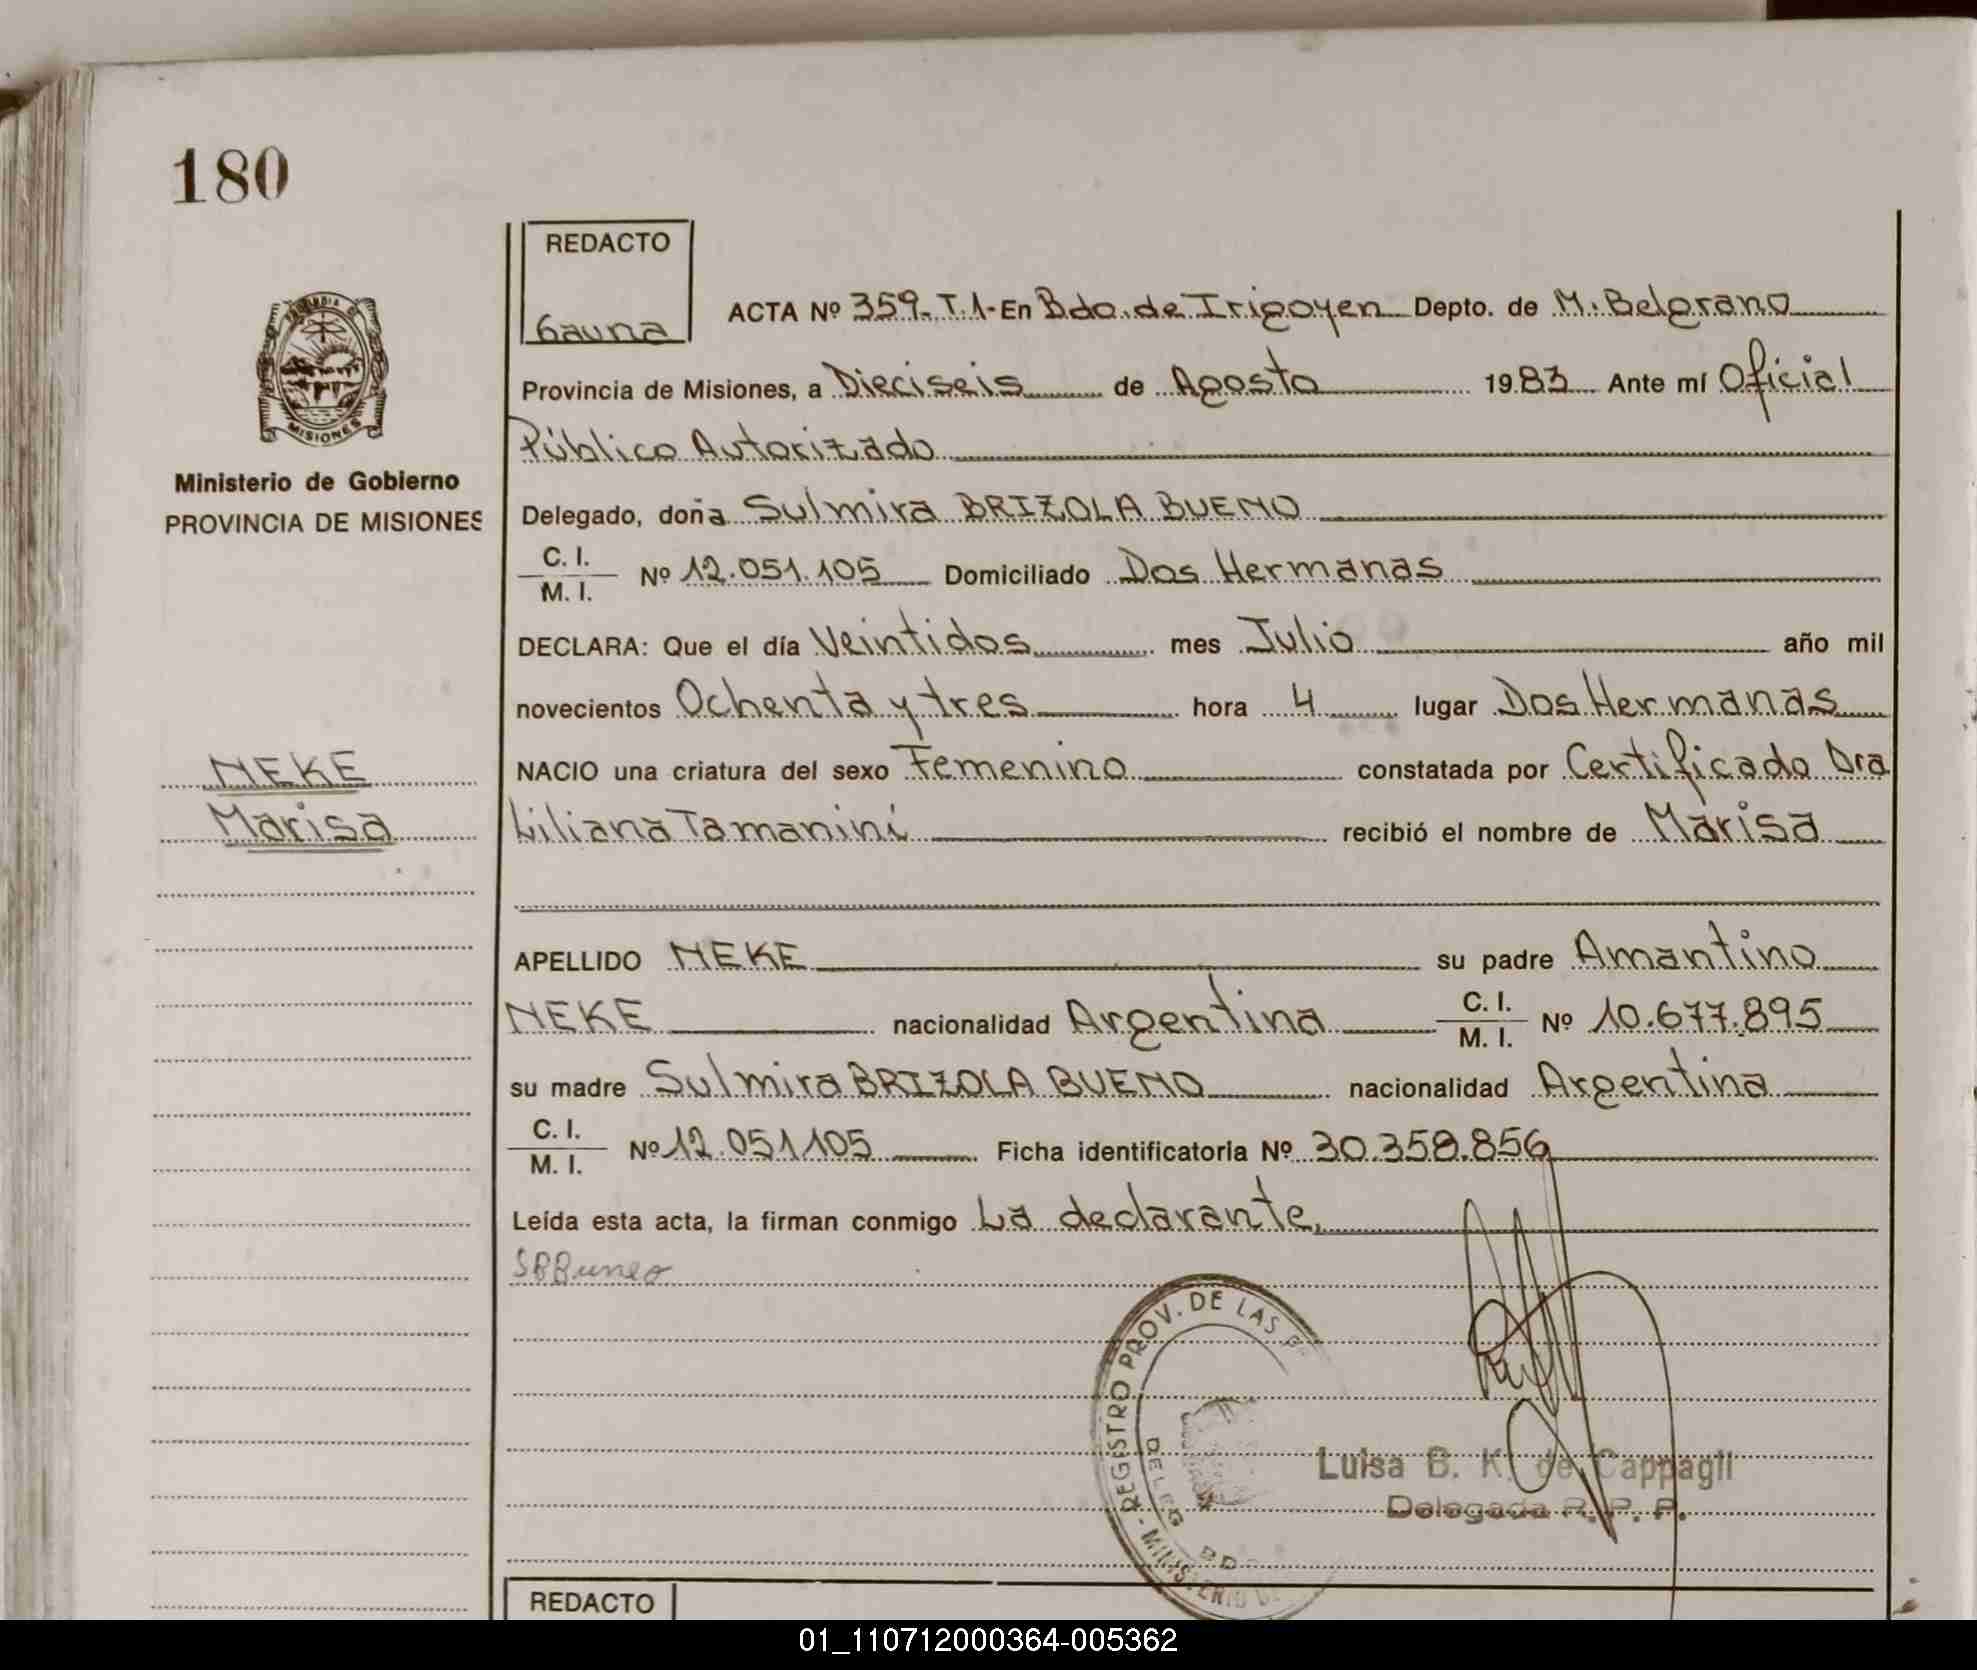 180
REDACTO
Gauna
ACTA Nº 359- T.1- En Bdo. de Irigoyen Depto. de M. Belgrano
Provincia de Misiones, a Dieciseis de Agosto 1983 Ante mí Oficial
Público Autorizado
MISIONES
Ministerio de Gobierno
PROVINCIA DE MISIONES
Delegado, doña Sulmira BRIZOLA BUENO
C. I.
M. I. Nº 12.051.105 Domiciliado Dos Hermanas
DECLARA: Que el día Veintidos mes Julio año mil
novecientos Ochenta y tres hora 4 lugar Dos Hermanas
NEKE
NACIO una criatura del sexo Femenino constatada por Certificado Dra
Marisa
Liliana Tamanini recibió el nombre de Marisa
APELLIDO NEKE su padre Amantino
NEKE nacionalidad Argentina C. I. M. I. Nº 10.677.895
su madre Sulmira BRIZOLA BUENO nacionalidad Argentina
C. I.
M. I. Nº 12.051105 Ficha identificatoria Nº 30.358.856
Leída esta acta, la firman conmigo La declarante,
SBBuneo
REGISTRO PROV. DE LAS
DELEG
MINISTERIO
Luisa B. K. de Cappagli
Delegada R. P. P.
REDACTO
01_110712000364-005362